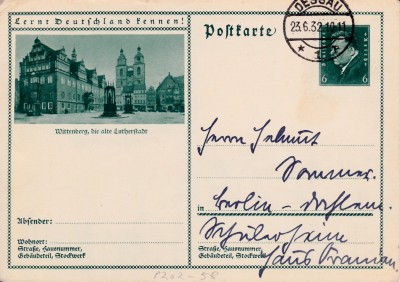 Lernt Deutschland kennen!
Wittenberg, die alte Lutherstadt
Postkarte
DESSAU
23.6.32.10-11
* 1 *
6 6
Herrn Helmut
Sommer.
in Berlin - Dahlem.
Schülerheim
Haus
Absender:
Wohnort:
Straße, Hausnummer,
Gebäudeteil, Stockwerk
Straße, Hausnummer,
Gebäudeteil, Stockwerk
P202-58